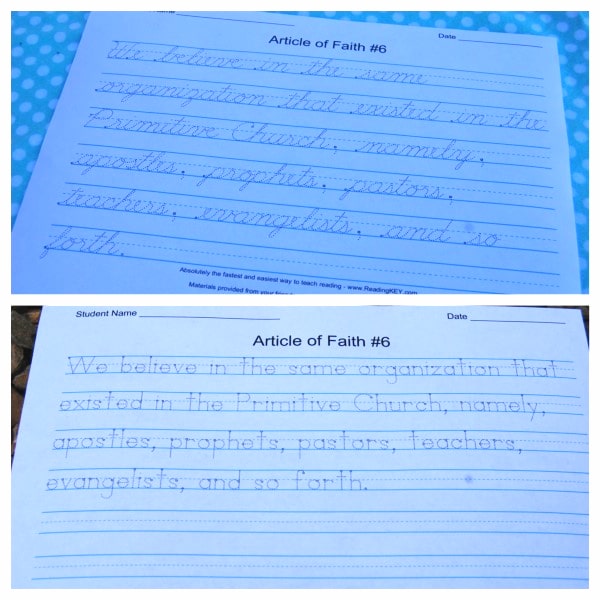 Name
Date
Article of Faith #6
We believe in the same
organization that existed in the
Primitive Church, namely,
apostles, prophets, pastors,
teachers, evangelists, and so
forth.
Absolutely the fastest and easiest way to teach reading - www.ReadingKEY.com
Materials provided from your
Student Name
Date
Article of Faith #6
We believe in the same organization that
existed in the Primitive Church, namely,
apostles, prophets, pastors, teachers,
evangelists, and so forth.